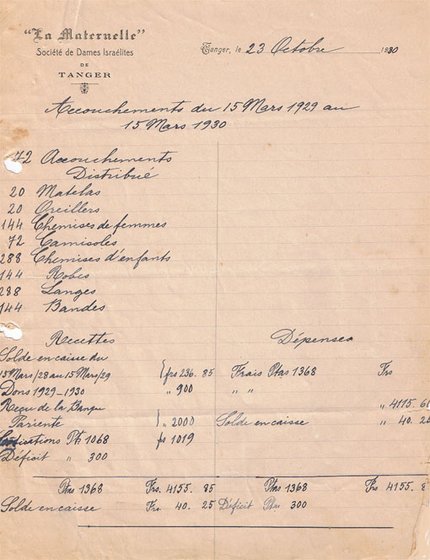 "La Maternelle"
Société de Dames Israélites
DE
TANGER
Tanger, le 23 Octobre 1930
Accouchements du 15 Mars 1929 au
15 Mars 1930
72 Accouchements
Distribué
20 Matelas
20 Oreillers
144 Chemises de femmes
72 Camisoles
288 Chemises d'enfants
144 Robes
288 Langes
144 Bandes
Recettes Dépenses
Solde en caisse du
15 Mars/28 au 15 Mars/29 frs 236. 85 Frais Ptas 1368 Frs
Dons 1929-1930 " 900 " "
Reçu de la Banque " 4115. 60
Pariente " 2000 Solde en caisse " 40. 25
Cotisations Pts 1068 frs 1019
Déficit " 300
Ptas 1368 Frs. 4155. 85 Ptas 1368 Frs 4155. 8
Solde en caisse Frs 40. 25 Déficit Ptas 300